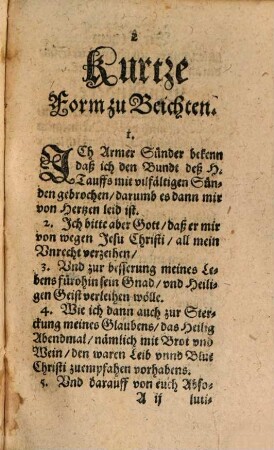 2
Kurtze
Form zu Beichten.
1.
ICh Armer Sünder bekenn
daß ich den Bundt deß H.
Tauffs mit vilfältigen Sün-
den gebrochen/ darumb es dann mir
von Hertzen leid ist.
2. Ich bitte aber Gott/ daß er mir
von wegen Jesu Christi/ all mein
Vnrecht verzeihen/
3. Vnd zur besserung meines Le-
bens fürohin sein Gnad/ vnd Heili-
gen Geist verleihen wölle.
4. Wie ich dann auch zur Ster-
ckung meines Glaubens/ das Heilig
Abendmal/ nämlich mit Brot vnd
Wein/ den waren Leib vnnd Blut
Christi zuempfahen vorhabens.
5. Vnd darauff von euch Abso-
A ij luti-